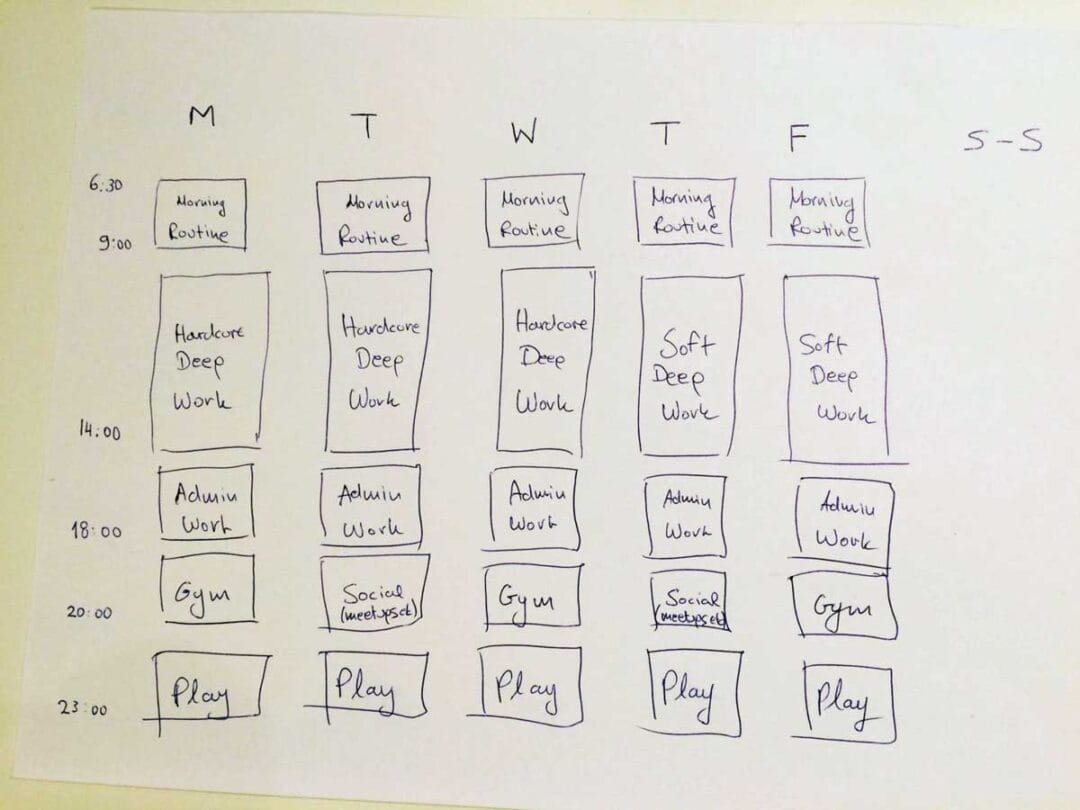 M T W T F S-S
6:30
Morning Routine
Morning Routine
Morning Routine
Morning Routine
Morning Routine
9:00
Hardcore Deep Work
Hardcore Deep Work
Hardcore Deep Work
Soft Deep Work
Soft Deep Work
14:00
Admin Work
Admin Work
Admin Work
Admin Work
Admin Work
18:00
Gym
Social (meetups etc)
Gym
Social (meetups etc)
Gym
20:00
Play
Play
Play
Play
Play
23:00